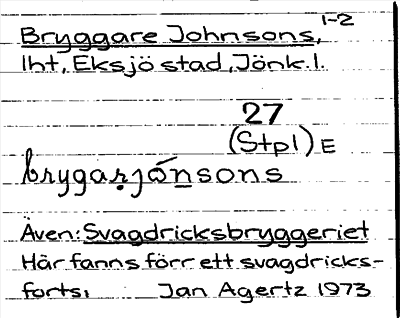 Bryggare Johnsons, 1-2
lht, Eksjö stad, Jönk. l.
27
(Stpl) E
brygarjónsons
Även: Svagdricksbryggeriet
Här fanns förr ett svagdricks-
forts. Jan Agertz 1973